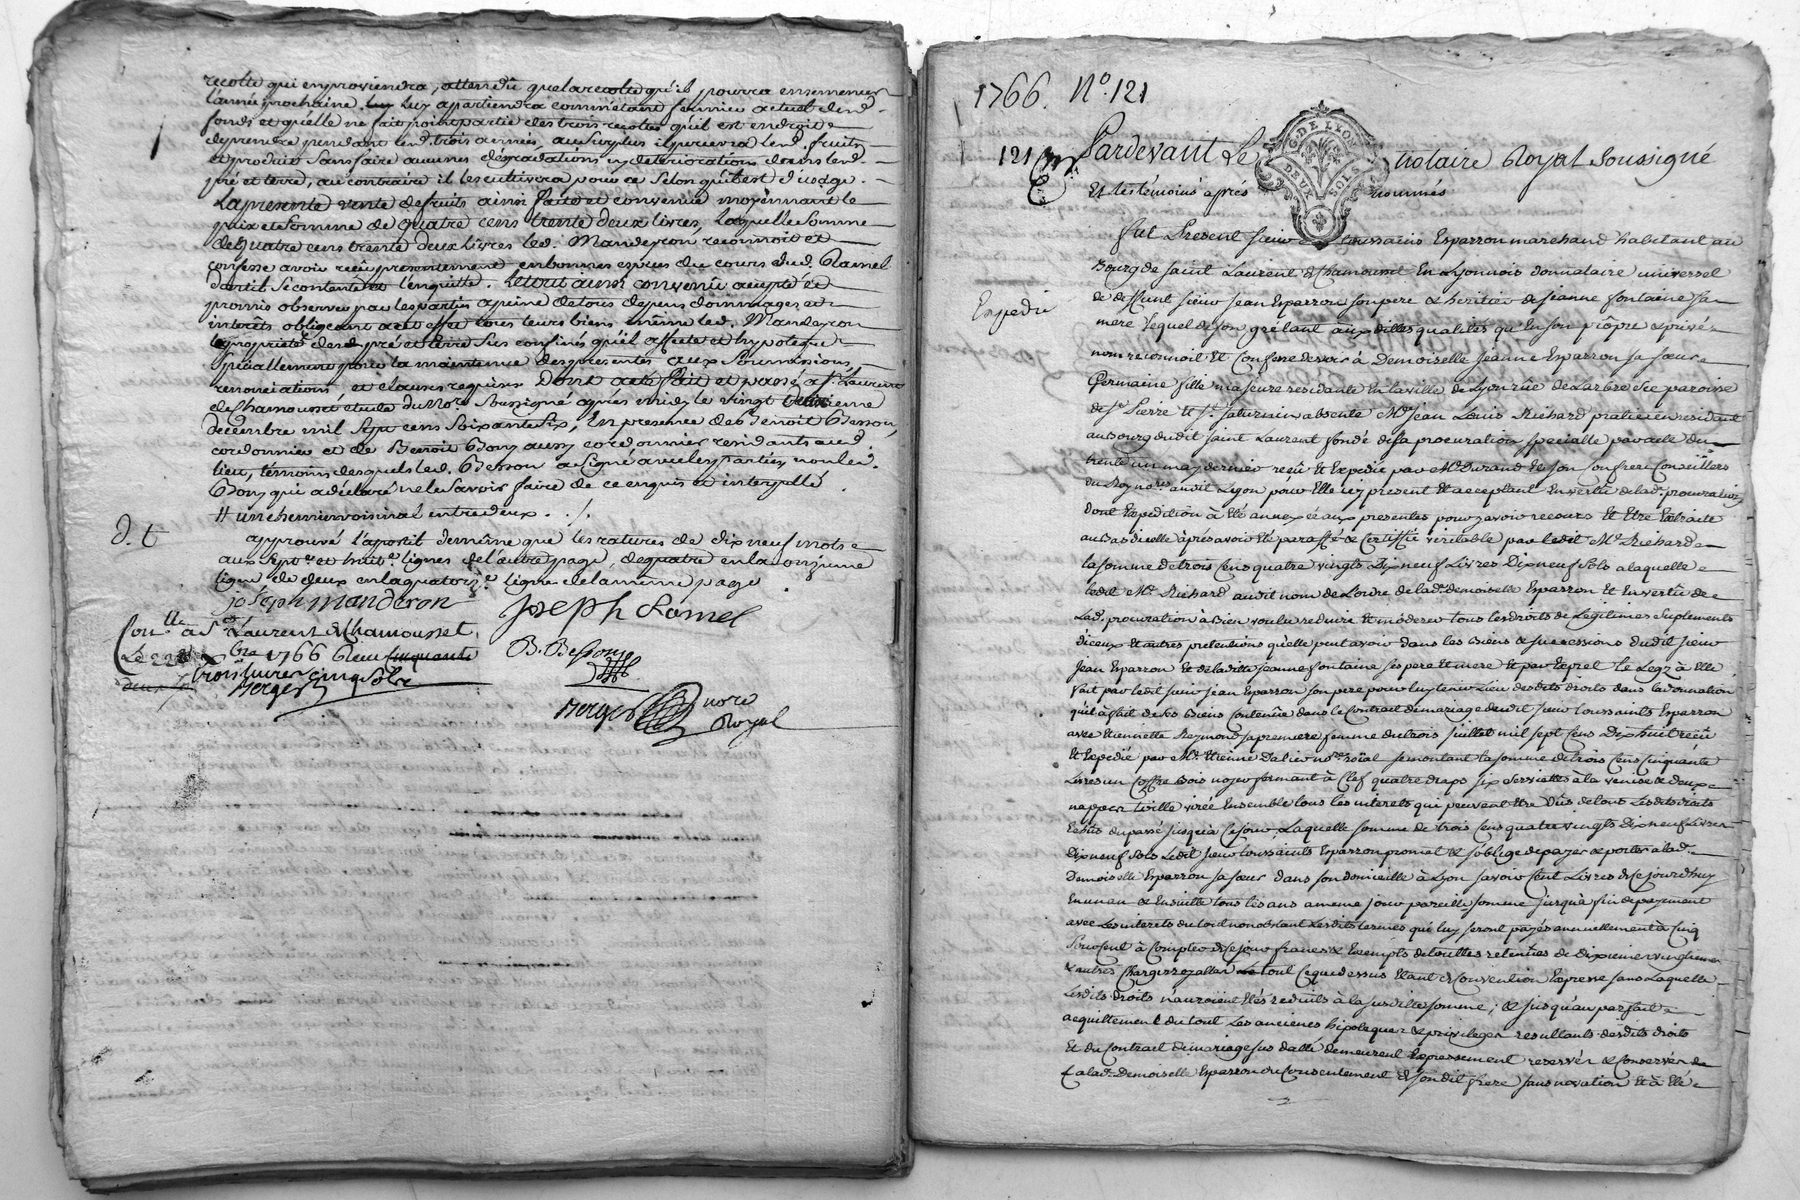 recolte qui en proviendra, attendu que la recolte qu'il pourra ensemencer
l'année prochaine luy apartiendra comm'étant fermier actuel dud.
fonds et qu'elle ne fait point partie des trois recoltes qu'il est en droit
de prendre pendant led. trois années, au surplus il percevra led. fruits
et produit sans faire aucunes dégradations ny deteriorations dans led.
pré et terre, au contraire il les cultivera pour ce selon qu'il est d'usage.
La presente vente de fruits ainsi faite et convenue moyennant le
prix et somme de quatre cens trente deux livres, laquelle somme
de quatre cens trente deux livres led. Manderon reconnoit et
confesse avoir reçu presentement en bonnes especes du cours dud. Ramel
dont il se contente et l'en quitte. Le tout ainsi convenu accepté et
promis observer par les parties a peine de tous depens dommages et
interêts obligeant a cet effet tous leurs biens même led. Manderon
la proprieté desd. pré et terre sus confinés qu'il affecte et hypoteque
specialement pour la maintenue des presentes aux soumissions,
renonciations et clauses requises Dont acte fait et passé a St. Laurent
de Chamousset etude du Nore. soussigné apres midy le vingt
decembre mil sept cens soixante six, En presence de Benoit Besson,
cordonnier et de Benoit Bony aussy cordonnier residants aud.
lieu, témoins desquels led. Besson a signé avec les parties non led.
Bony qui a déclaré ne le savoir faire de ce enquis et interpellé.
# un chemin voisinal entre deux ./.
D. t
approuvé l'apostil de même que les ratures de dix neuf mots
aux sept et huite. lignes de l'autre page, de quatre en la onzieme
ligne de deux en la quatorze. ligne de la meme page
joseph manderon
Joseph Ramel
Conlle a St. Laurent de Chamousset,
B. Besson
Le 22 Xbre 1766 Reçu cinquante
trois livres cinq sols
Berger
Berger nore
Royal
1766. No. 121
121
Pardevant Le notaire Royal sousigné
Et les témoins après nommés
Expedié
fut Present sieur toussains Esparron marchand habitant au
Bourg de saint Laurent de Chamousset En Lyonnois donnataire universel
de deffunt sieur jean Esparron son pere & heritier de jeanne fontaine sa
mere Lequel de son gré tant auxdittes qualités qu'En son prôpre & privé
nom reconnoit Et Confesse devoir à Demoiselle jeanne Esparron sa sœur
Germaine fille majeure residante En la ville de Lyon rüe de Larbre sec paroisse
de St. Pierre Et St. saturnin absente Me. jean Louis Richard praticien residant
au Bourg dudit saint Laurent fondé de sa procuration specialle par acte du
trente un may dernier reçû Et Expedié par Me. Durand Et son confrere Conseillers
du Roy nores. audit Lyon pour Elle icy present Et acceptant En vertu de lad. procuration
dont Expedition à Eté annexée aux presentes pour y avoir recours Et Etre Extraite
au Bas dicelle après avoir Eté paraffé & Certiffié veritable par ledit Me. Richard
la somme de trois Cens quatre vingts Dix neuf Livres Dix neuf sols a laquelle
ledit Me. Richard audit nom de Lordre de lad. demoiselle Esparron Et En vertu de
Lad. procuration à Bien voulu reduire Et moderer tous les droits de Legitimes suplements
diceux Et autres pretentions qu'elle peut avoir dans les Biens & successions dudit sieur
jean Esparron Et de laditte jeanne fontaine ses pere Et mere Et par Exprès le Legs à Elle
fait par ledit sieur jean Esparron son pere pour luy tenir Lieu desdits droits dans la donnation
qu'il à fait de ses Biens Contenüe dans le Contrait de mariage dudit sieur toussaints Esparron
avec Etiennette Reymond sa premiere femme du trois juillet mil sept Cens Dix huit réçû
Et Expedié par Me. Etienne Dalier nore. roïal se montant la somme de trois Cens Cinquante
Livres un Coffre Bois noyer fermant à Clef quatre draps six serviettes à la venise & deux
nappes toille virée Ensemble tous les interets qui peuvent Etre Dûs de tous Lesdits droits
reduits du passé jusqu'à Ce jour, Laquelle somme de trois Cens quatre vingts Dix neuf Livres
Dix neuf sols Ledit sieur toussaints Esparron promet & soblige de payer & porter a lad.
Demoiselle Esparron sa sœur dans son domicille à Lyon savoir Cent Livres de Ce jourd'huy
En un an & Ensuitte tous les ans a meme jour pareille somme jusqu'à fin de payement
avec Les interets du tout nonobstant Lesdits termes qui luy seront payés annuellement à Cinq
Pour Cent à Compter de Ce jour francs & Exempts de touttes retenües de dixieme vingtieme
& autres Charges royalles Le tout Ce que dessus Etant de Convention Expresse sans Laquelle
Lesdits droits n'auroient Etés reduits à la susditte somme; & jusqu'au parfait
acquittement du tout Les anciennes hipoteques & privileges resultants desdits droits
Et du Contrait de mariage sus datté demeurent Expressement reservés & Conservés de
a lad. Demoiselle Esparron du Consentement de sondit frere sans novation Et à Elé